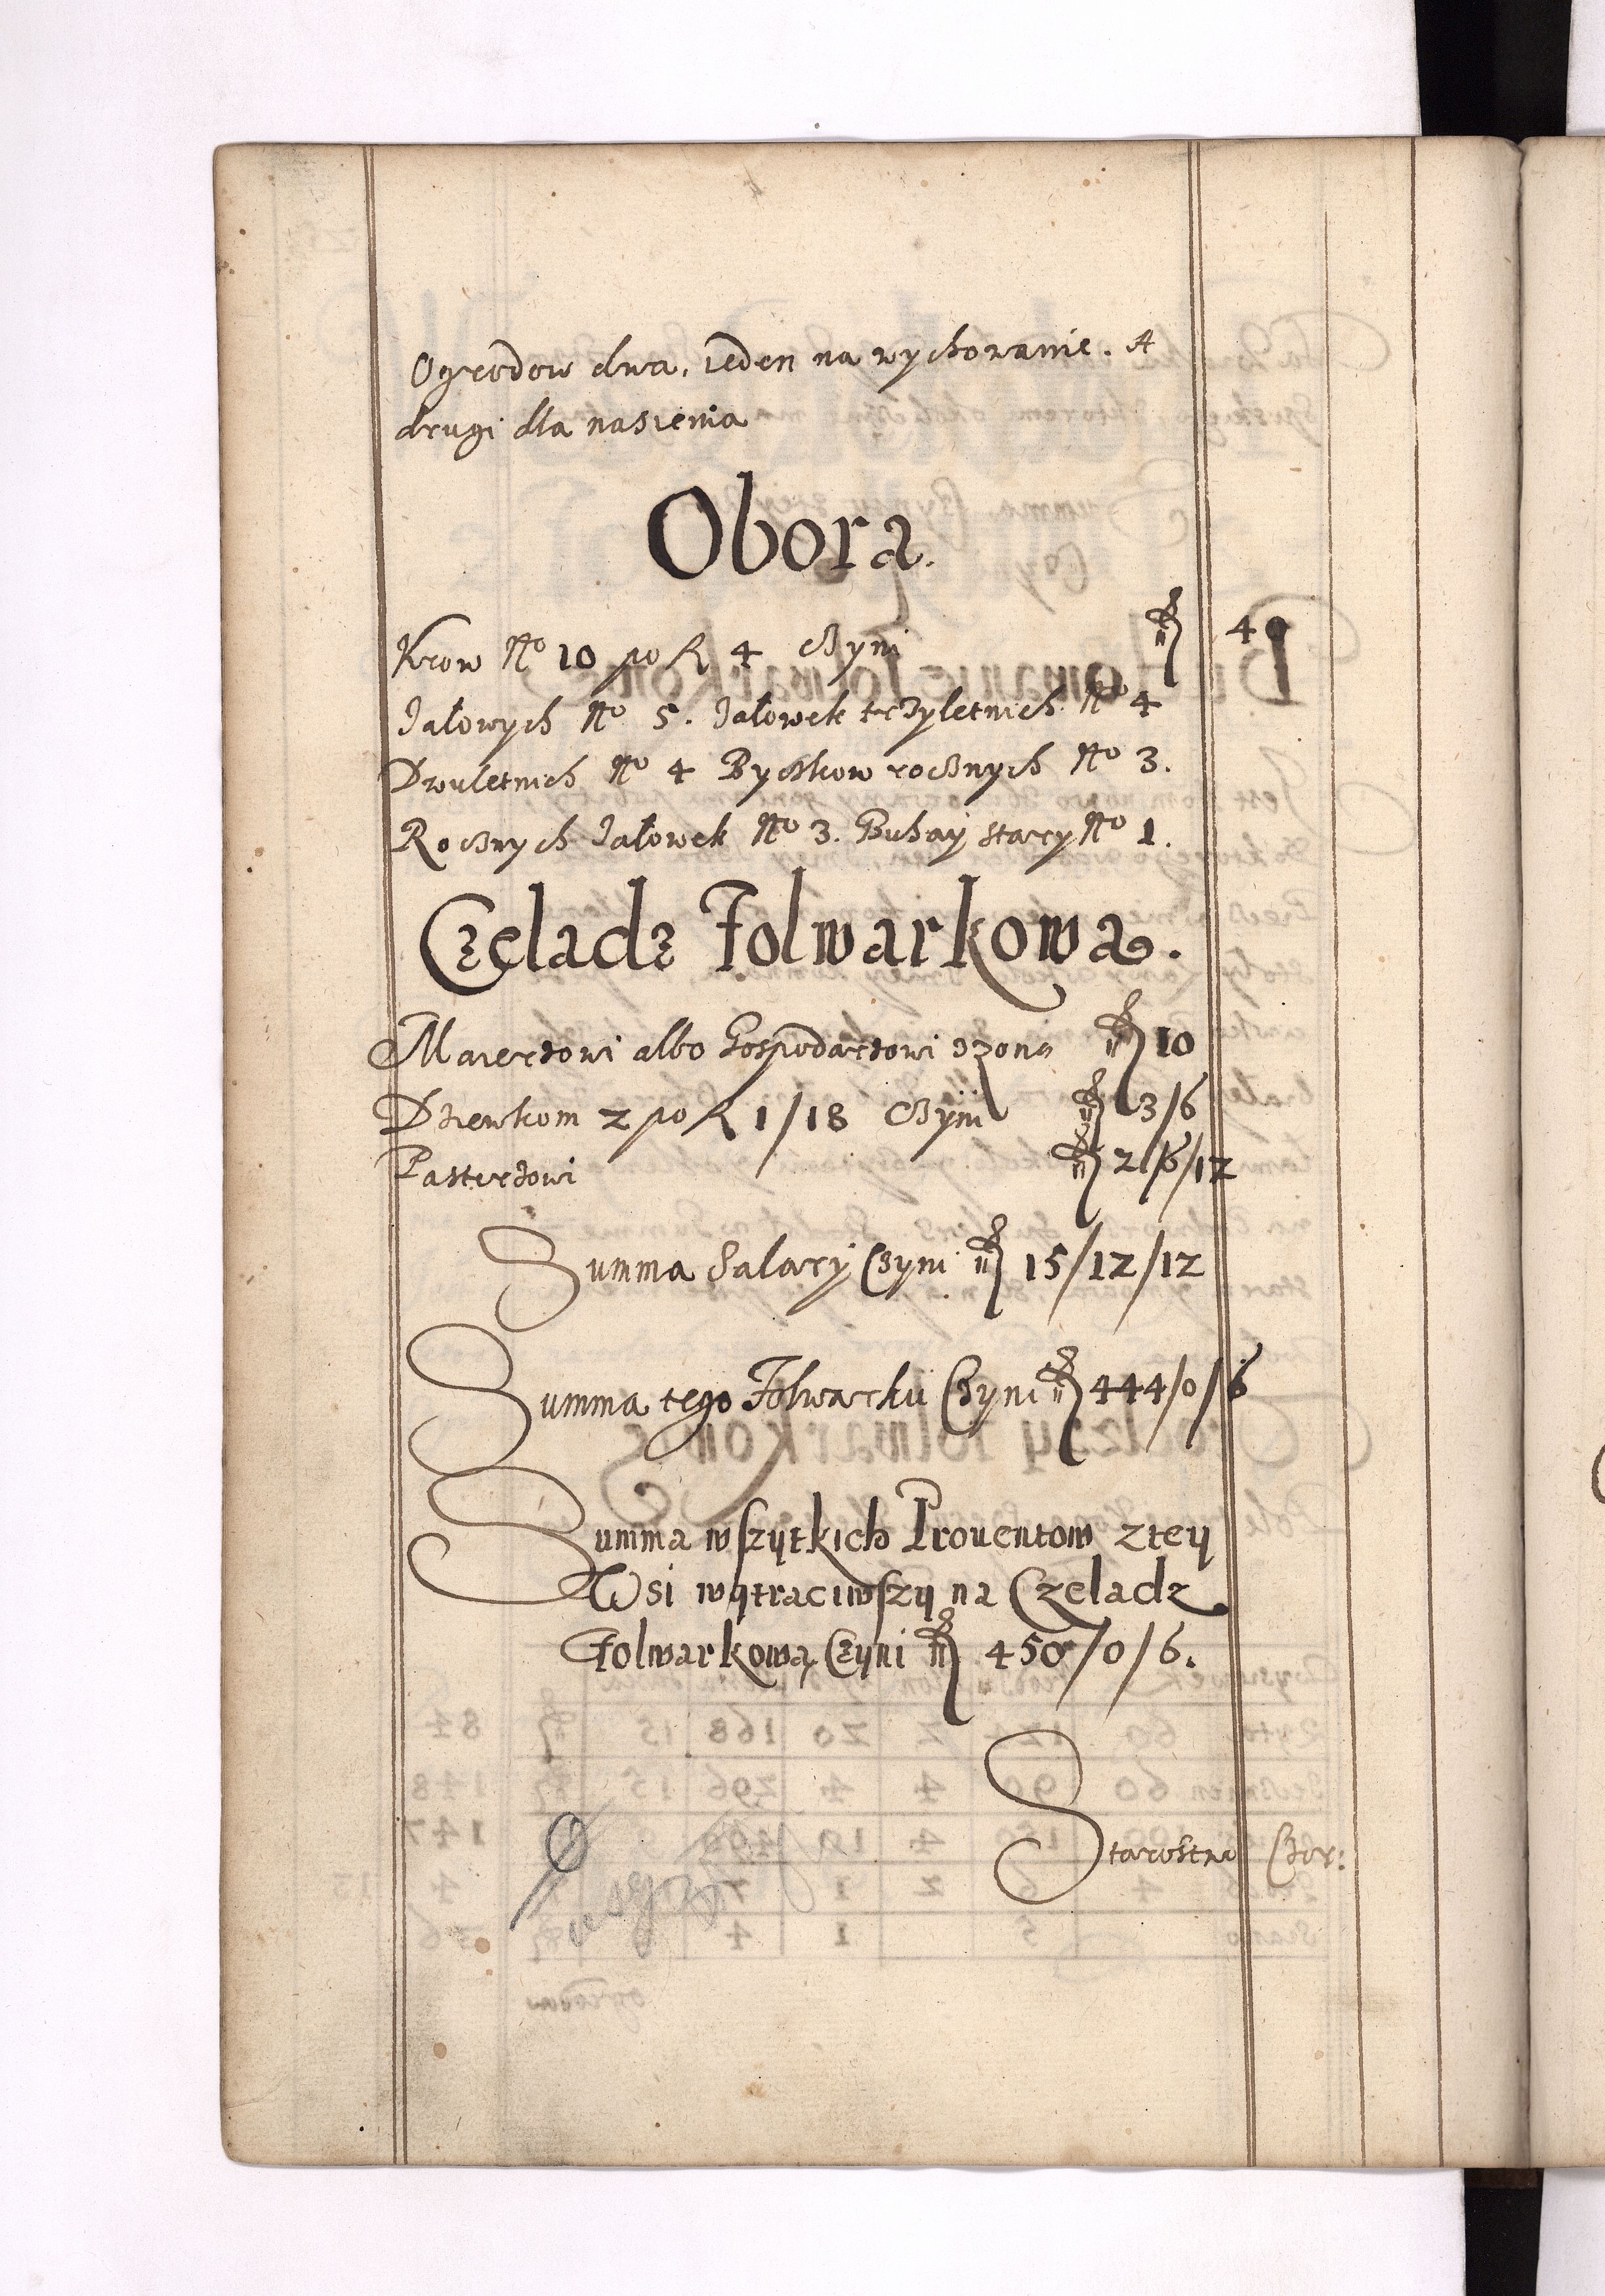 Ogrodow dwa, ieden na wychowanie. A
drugi dla nasienia
Obora.
Krow No 10 po fl 4 Czyni fl 40
Jałowych No 5. Jałowek trzyletnich No 4
Dwuletnich No 4 Byczkow rocznych No 3.
Rocznych Jałowek No 3. Buhaÿ stary No 1.
Czeladz Folwarkowa.
Maierzowi albo Gospodarzowi zzoną fl 10
Dziewkom 2 po fl 1/18 Czÿni fl 3/6
Pasterzowi fl 2/6/12
Summa Salarÿ Czyni fl 15/12/12
Summa tego Folwarku Czyni fl 444/0/6
Summa wszytkich Prouentow ztey
Wsi wytraciwszy na Czeladz
Folwarkową Czyni fl 450/0/6.
Starostwo Czor: